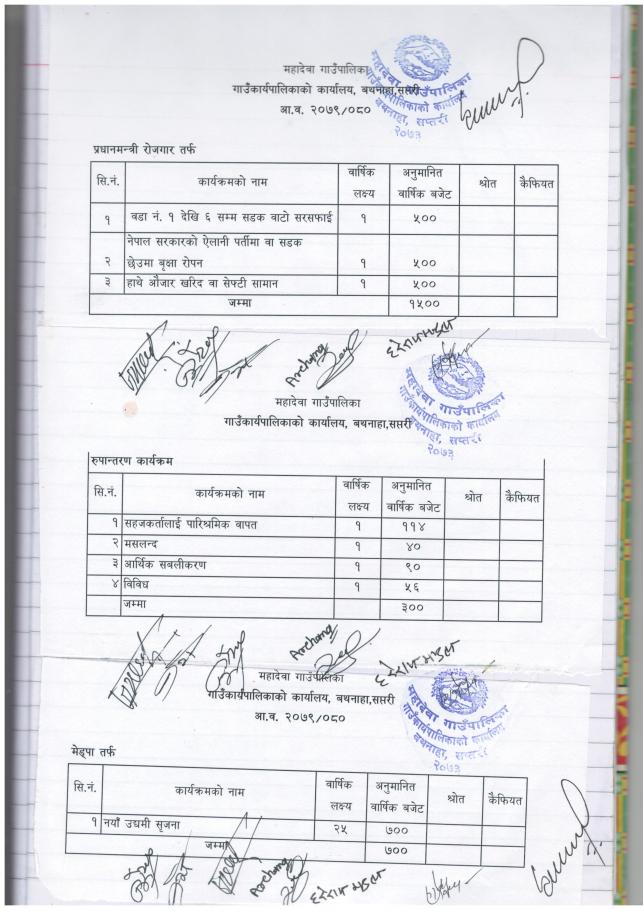 महादेवा गाउँपालिका
गाउँकार्यपालिकाको कार्यालय, बथनाहा,सप्तरी
आ.व. २०७९/०८०
महादेवा गाउँपालिका
गाउँकार्यपालिकाको कार्यालय
बथनाहा, सप्तरी
२०७३
प्रधानमन्त्री रोजगार तर्फ
सि.नं. कार्यक्रमको नाम वार्षिक लक्ष्य अनुमानित वार्षिक बजेट श्रोत कैफियत
१ वडा नं. १ देखि ६ सम्म सडक वाटो सरसफाई १ ५००
नेपाल सरकारको ऐलानी पर्तीमा वा सडक
२ छेउमा बृक्षा रोपन १ ५००
३ हाथे औजार खरिद वा सेफ्टी सामान १ ५००
जम्मा १५००
Archana
महादेवा गाउँपालिका
गाउँकार्यपालिकाको कार्यालय, बथनाहा,सप्तरी
महादेवा गाउँपालिका
गाउँकार्यपालिकाको कार्यालय
बथनाहा, सप्तरी
२०७३
रुपान्तरण कार्यक्रम
सि.नं. कार्यक्रमको नाम वार्षिक लक्ष्य अनुमानित वार्षिक बजेट श्रोत कैफियत
१ सहजकर्तालाई पारिश्रमिक वापत १ ११४
२ मसलन्द १ ४०
३ आर्थिक सबलीकरण १ ९०
४ विविध १ ५६
जम्मा ३००
Archana
महादेवा गाउँपालिका
गाउँकार्यपालिकाको कार्यालय, बथनाहा,सप्तरी
आ.व. २०७९/०८०
महादेवा गाउँपालिका
गाउँकार्यपालिकाको कार्यालय
बथनाहा, सप्तरी
२०७३
मेड्पा तर्फ
सि.नं. कार्यक्रमको नाम वार्षिक लक्ष्य अनुमानित वार्षिक बजेट श्रोत कैफियत
१ नयाँ उघमी सृजना २५ ७००
जम्मा ७००
Archana